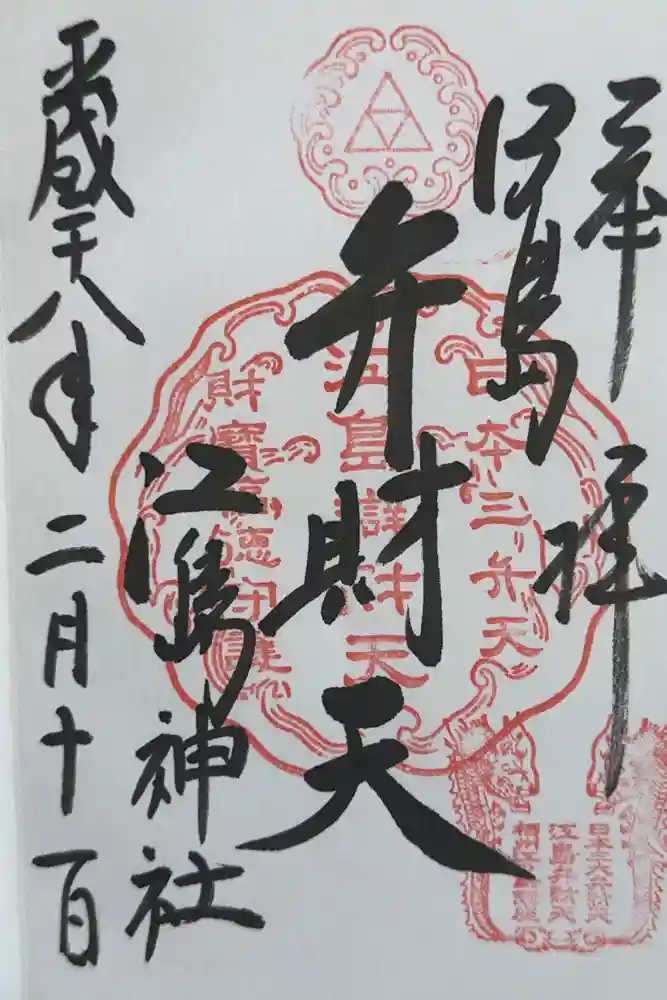 奉拝
江島
弁財天
江島神社
平成廿八年二月十一日
日本三弁天
江島辯財天
財寶福徳守護
日本三大弁財天
江島弁財天